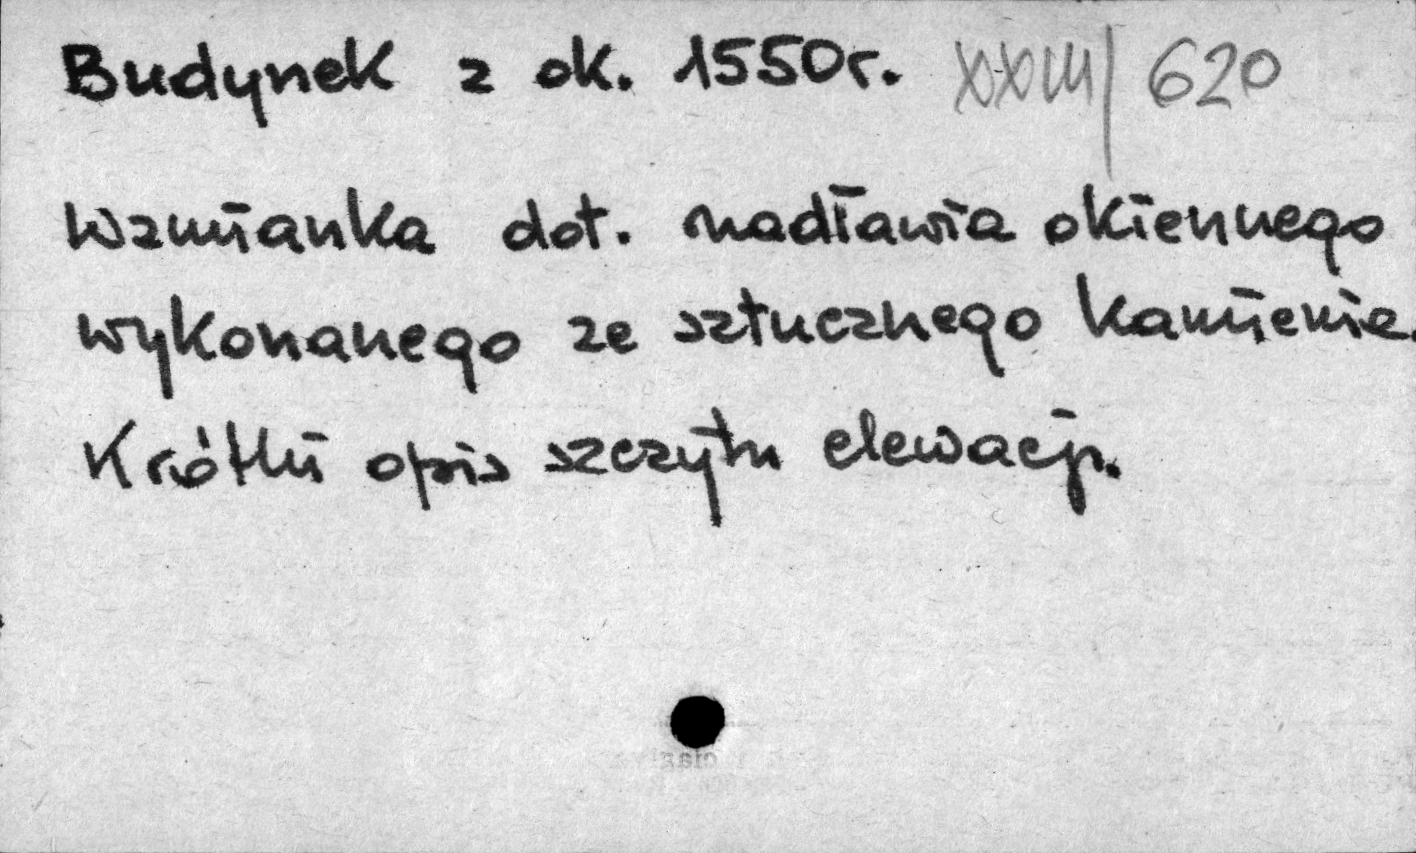 Budynek z ok. 1550r. XXIII/620
Wzmianka dot. nadławia okiennego
wykonanego ze sztucznego kamienia.
Krótki opis szczytu elewacji.